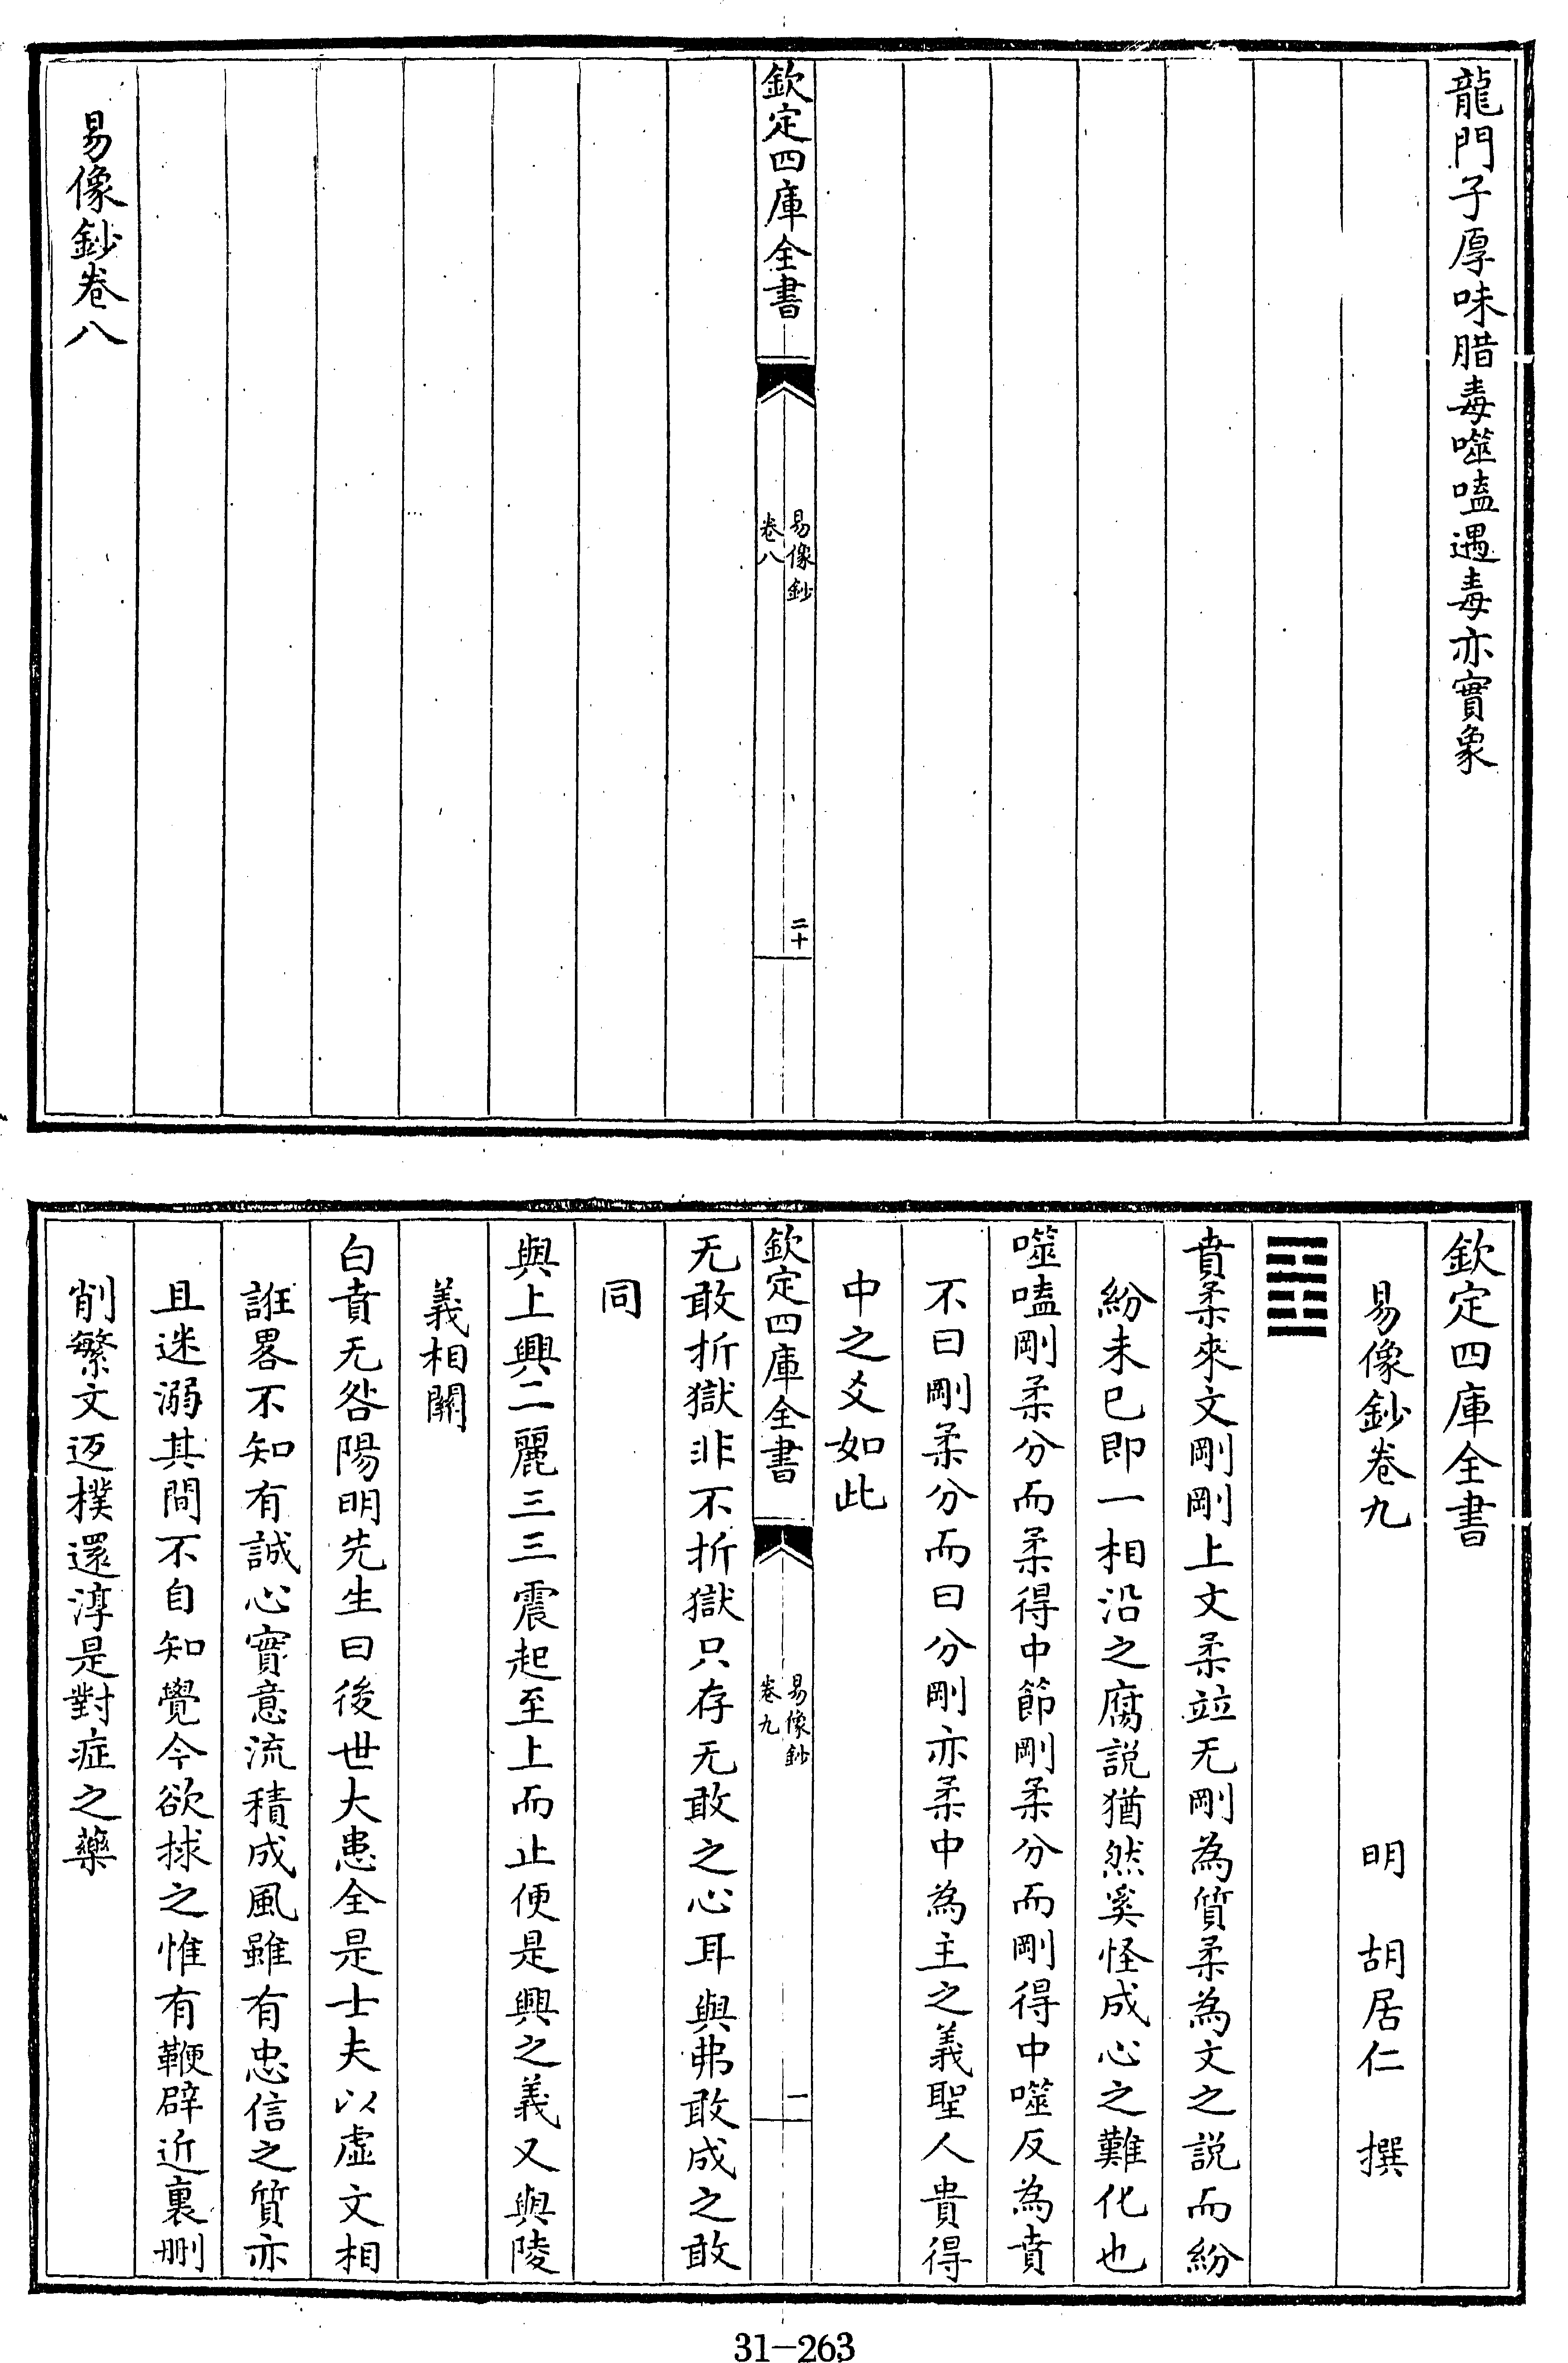 龍門子厚味腊毒噬嗑遇毒亦實象
欽定四庫全書
易像鈔
卷八
二十
易像鈔卷八
欽定四庫全書
易像鈔卷九
明 胡居仁 撰
䷕
賁柔來文剛剛上文柔竝无剛為質柔為文之説而紛
紛未已即一相沿之腐説猶然奚怪成心之難化也
噬嗑剛柔分而柔得中節剛柔分而剛得中噬反為賁
不曰剛柔分而曰分剛亦柔中為主之義聖人貴得
中之爻如此
欽定四庫全書
易像鈔
卷九
一
无敢折獄非不折獄只存无敢之心耳與弗敢成之敢
同
與上興二麗三三震起至上而止便是興之義又與陵
義相關
白賁无咎陽明先生曰後世大患全是士夫以虛文相
誑畧不知有誠心實意流積成風雖有忠信之質亦
且迷溺其間不自知覺今欲捄之惟有鞭辟近裏刪
削繁文迈樸還淳是對症之藥
31-263